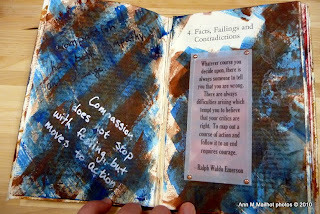 Compassion
does not stop
with feeling, but
moves to action
4. Facts, Failings and
Contradictions
Whatever course you
decide upon, there is
always someone to tell
you that you are wrong.
There are always
difficulties arising which
tempt you to believe
that your critics are
right. To map out a
course of action and
follow it to an end
requires courage.
- Ralph Waldo Emerson
Ann M Mailhot photos © 2010